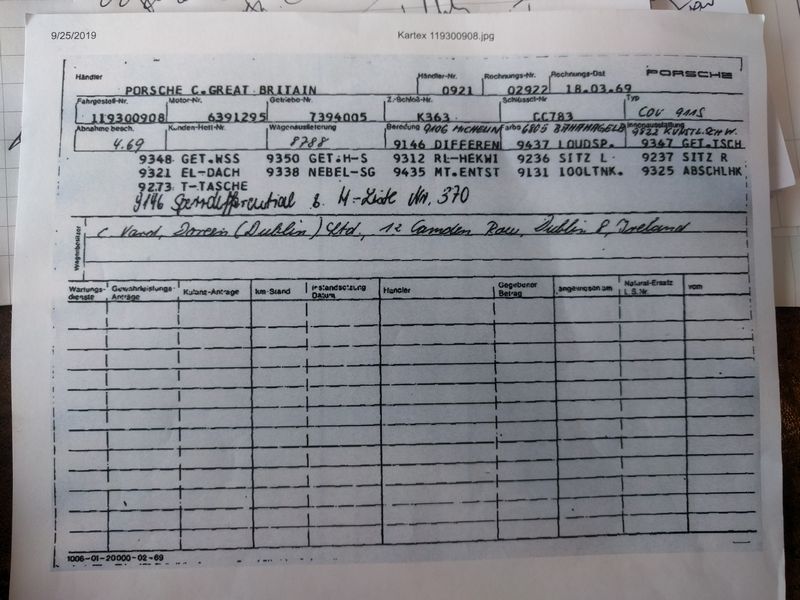 9/25/2019 Kartex 119300908.jpg
Händler Händler-Nr. Rechnungs-Nr. Rechnungs-Dat PORSCHE
PORSCHE C.GREAT BRITAIN 0921 02922 18.03.69
Fahrgestell-Nr. Motor-Nr. Getriebe-Nr. Z.-Schloß-Nr. Schlüssel-Nr. Typ
119300908 6391295 7394005 K363 CC783 COU 911S
Abnahme besch. Kunden-Heft-Nr. Wagenauslieferung Bereifung 9106 MICHELIN Farbe 6805 BAHAMAGELB Innenausstattung
4.69 8788 9146 DIFFEREN 9437 LOUDSP. 9367 GET.TSCH
9348 GET.WSS 9350 GET.H-S 9312 RL-HEKWI 9236 SITZ L 9237 SITZ R
9321 EL-DACH 9338 NEBEL-SG 9435 MT.ENTST 9131 100LTNK. 9325 ABSCHLHK
9273 T-TASCHE
9146 Sperrdifferential s. M-Liste Nr. 370
Wagenbesitzer
C. Vard, (Dublin) Ltd., 12 Camden Row, Dublin 8, Ireland
Wartungs- Gewährleistungs- Kulanz-Anträge km-Stand Instandsetzung Händler Gegebener angewiesen am Natural-Ersatz vom
dienste Anträge Datum Betrag L.S.Nr.
1006-01-20000-02-69